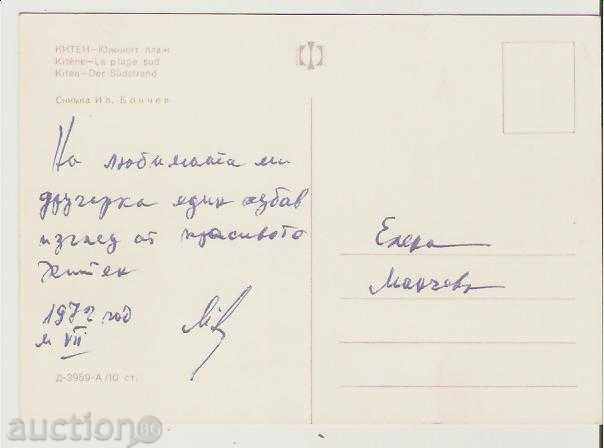 КИТЕН—Южният плаж
Kitène—La plage sud
Kiten—Der Südstrand
Снимка Ил. Бончев
На любимата ми
другарка един хубав
изглед от красивото
Китен
1972 год
м VII
Елена
Манчева
Д-3959-А/10 ст.
auction BG